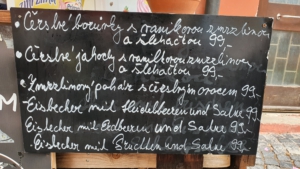 Čerstvé borůvky s vanilkovou zmrzlinou
a šlehačkou 99,-
Čerstvé jahody s vanilkovou zmrzlinou
a šlehačkou 99,-
Zmrzlinový pohár s čerstvým ovocem 99,-
Eisbecher mit Heidelbeeren und Sahne 99,-
Eisbecher mit Erdbeeren und Sahne 99,-
Eisbecher mit Früchten und Sahne 99,-